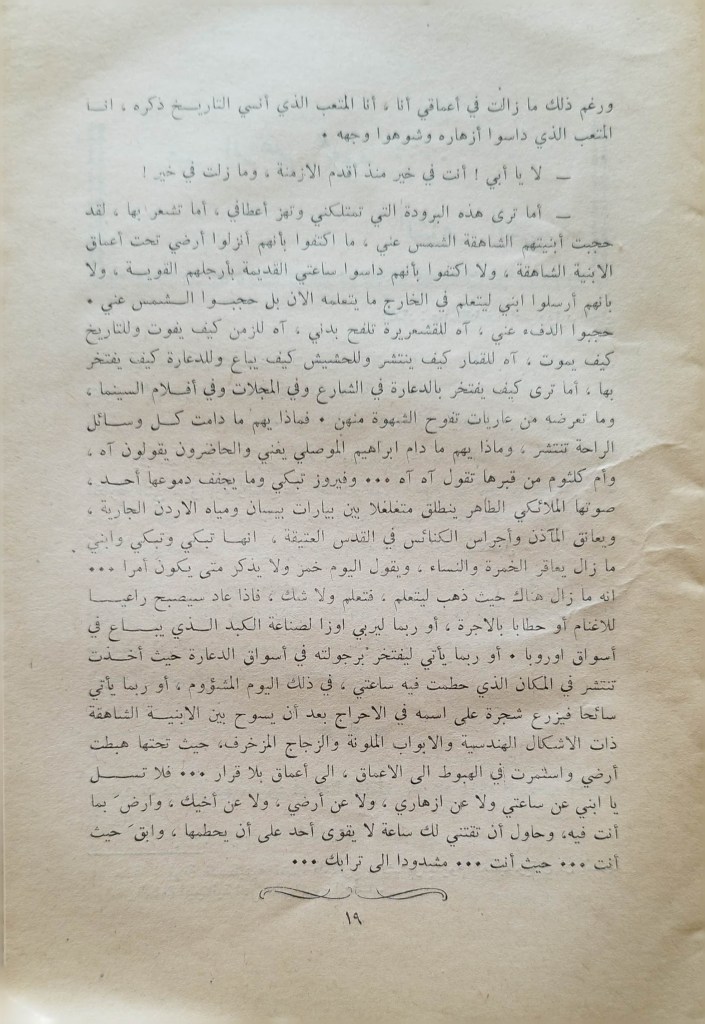 ورغم ذلك ما زالت في أعماقي أنا ، أنا المتعب الذي أنسي التاريخ ذكره ، انا
المتعب الذي داسوا أزهاره وشوهوا وجهه •
ــ لا يا أبي ! أنت في خير منذ أقدم الازمنة ، وما زلت في خير !
ــ أما ترى هذه البرودة التي تمتلكني وتهز أعطافي ، أما تشعر بها ، لقد
حجبت أبنيتهم الشاهقة الشمس عني ، ما اكتفوا بأنهم أنزلوا أرضي تحت أعماق
الابنية الشاهقة ، ولا اكتفوا بأنهم داسوا ساعتي القديمة بأرجلهم القوية ، ولا
بأنهم أرسلوا ابني ليتعلم في الخارج ما يتعلمه الان بل حجبوا الشمس عني •
حجبوا الدفء عني ، آه للقشعريرة تلفح بدني ، آه للزمن كيف يفوت وللتاريخ
كيف يموت ، آه للقمار كيف ينتشر وللحشيش كيف يباع وللدعارة كيف يفتخر
بها ، أما ترى كيف يفتخر بالدعارة في الشارع وفي المجلات وفي أفلام السينما ،
وما تعرضه من عاريات تفوح الشهوة منهن • فماذا يهم ما دامت كل وسائل
الراحة تنتشر ، وماذا يهم ما دام ابراهيم الموصلي يغني والحاضرون يقولون آه ،
وأم كلثوم من قبرها تقول آه آه ••• وفيروز تبكي وما يجفف دموعها أحد ،
صوتها الملائكي الطاهر ينطلق متغلغلا بين بيارات بيسان ومياه الاردن الجارية ،
ويعانق المآذن وأجراس الكنائس في القدس العتيقة ، انها تبكي وتبكي وابني
ما زال يعاقر الخمرة والنساء ، ويقول اليوم خمر ولا يذكر متى يكون أمرا •••
انه ما زال هناك حيث ذهب ليتعلم ، فتعلم ولا شك ، فاذا عاد سيصبح راعيا
للاغنام أو حطابا بالاجرة ، أو ربما ليربي اوزا لصناعة الكبد الذي يباع في
أسواق اوروبا • أو ربما يأتي ليفتخر برجولته في أسواق الدعارة حيث أخذت
تنتشر في المكان الذي حطمت فيه ساعتي ، في ذلك اليوم المشؤوم ، أو ربما يأتي
سائحا فيزرع شجرة على اسمه في الاحراج بعد أن يسوح بين الابنية الشاهقة
ذات الاشكال الهندسية والابواب الملونة والزجاج المزخرف، حيث تحتها هبطت
أرضي واستمرت في الهبوط الى الاعماق ، الى أعماق بلا قرار ••• فلا تسل
يا ابني عن ساعتي ولا عن ازهاري ، ولا عن أرضي ، ولا عن أخيك ، وارضَ بما
أنت فيه، وحاول أن تقتني لك ساعة لا يقوى أحد على أن يحطمها ، وابقَ حيث
أنت ••• حيث أنت ••• مشدودا الى ترابك •••
١٩